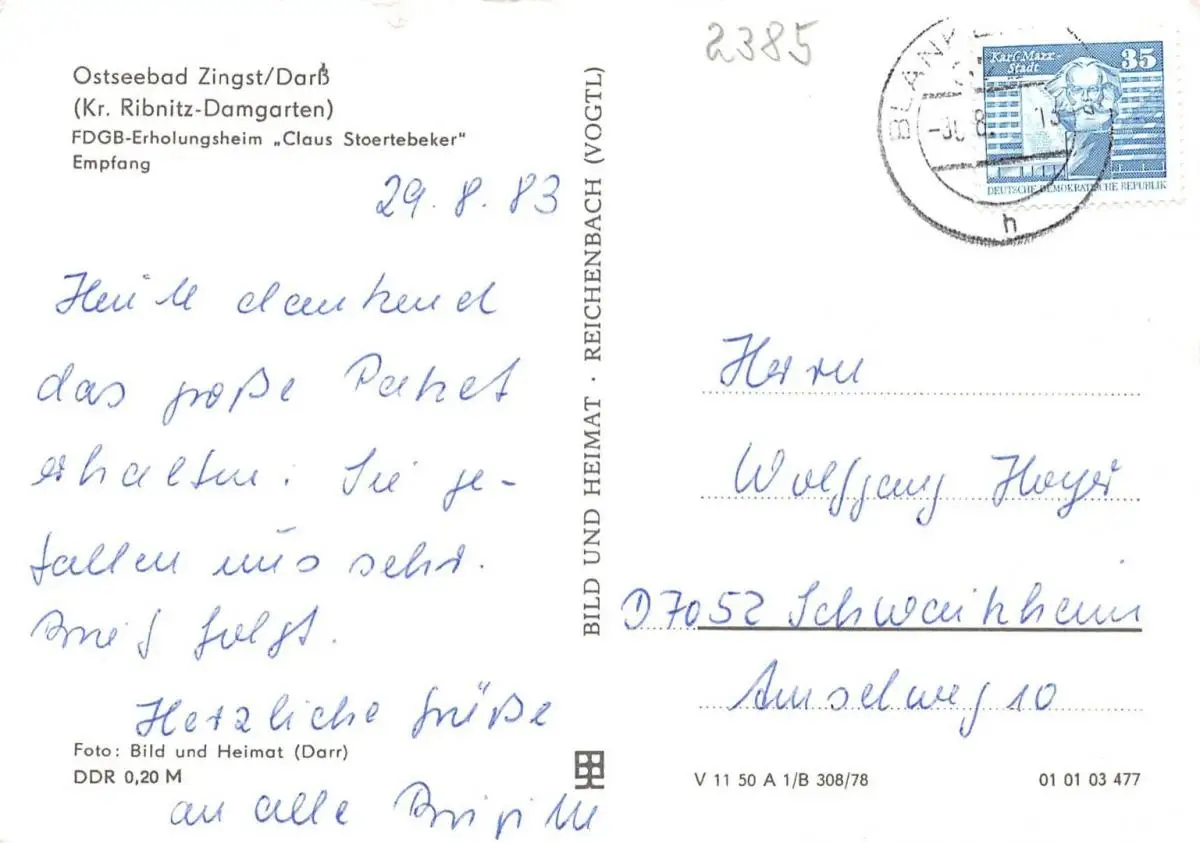 2385
Ostseebad Zingst/Darß
(Kr. Ribnitz-Damgarten)
FDGB-Erholungsheim „Claus Stoertebeker"
Empfang
29.8.83
Heute dankend
das große Paket
erhalten. Sie ge-
fallen uns sehr.
Brief folgt.
Herzliche Grüße
an alle Brigitte
Foto: Bild und Heimat (Darr)
DDR 0,20 M
BILD UND HEIMAT · REICHENBACH (VOGTL)
BLANK
-30.8. 13
h
Karl-Marx-
Stadt
35
DEUTSCHE DEMOKRATISCHE REPUBLIK
Herrn
Wolfgang Hoyer
D7052 Schwaikheim
Amselweg 10
V 11 50 A 1/B 308/78
01 01 03 477